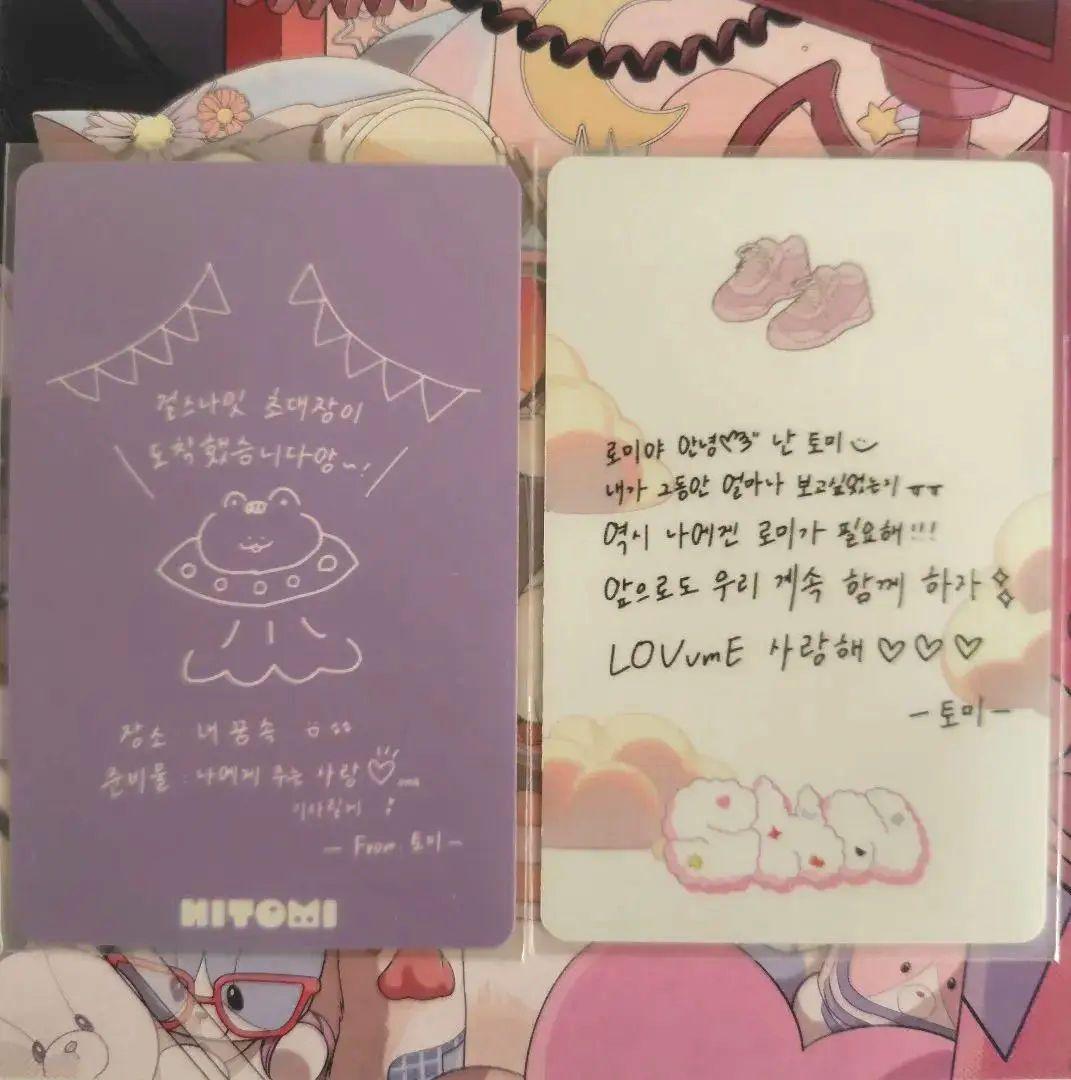 걸스나잇 초대장이
도착했습니다앙~!
장소 내 꿈속
준비물 : 나에게 주는 사랑♡
— From. 토미 —
HITOMI
로미야 안녕♡3" 난 토미
내가 그동안 얼마나 보고싶었는지 ㅠㅠ
역시 나에겐 로미가 필요해!!!
앞으로도 우리 계속 함께 하자
LOVumE 사랑해 ♡♡♡
— 토미 —